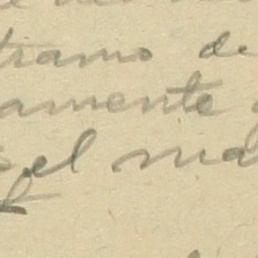 tramo de
amente
el ma